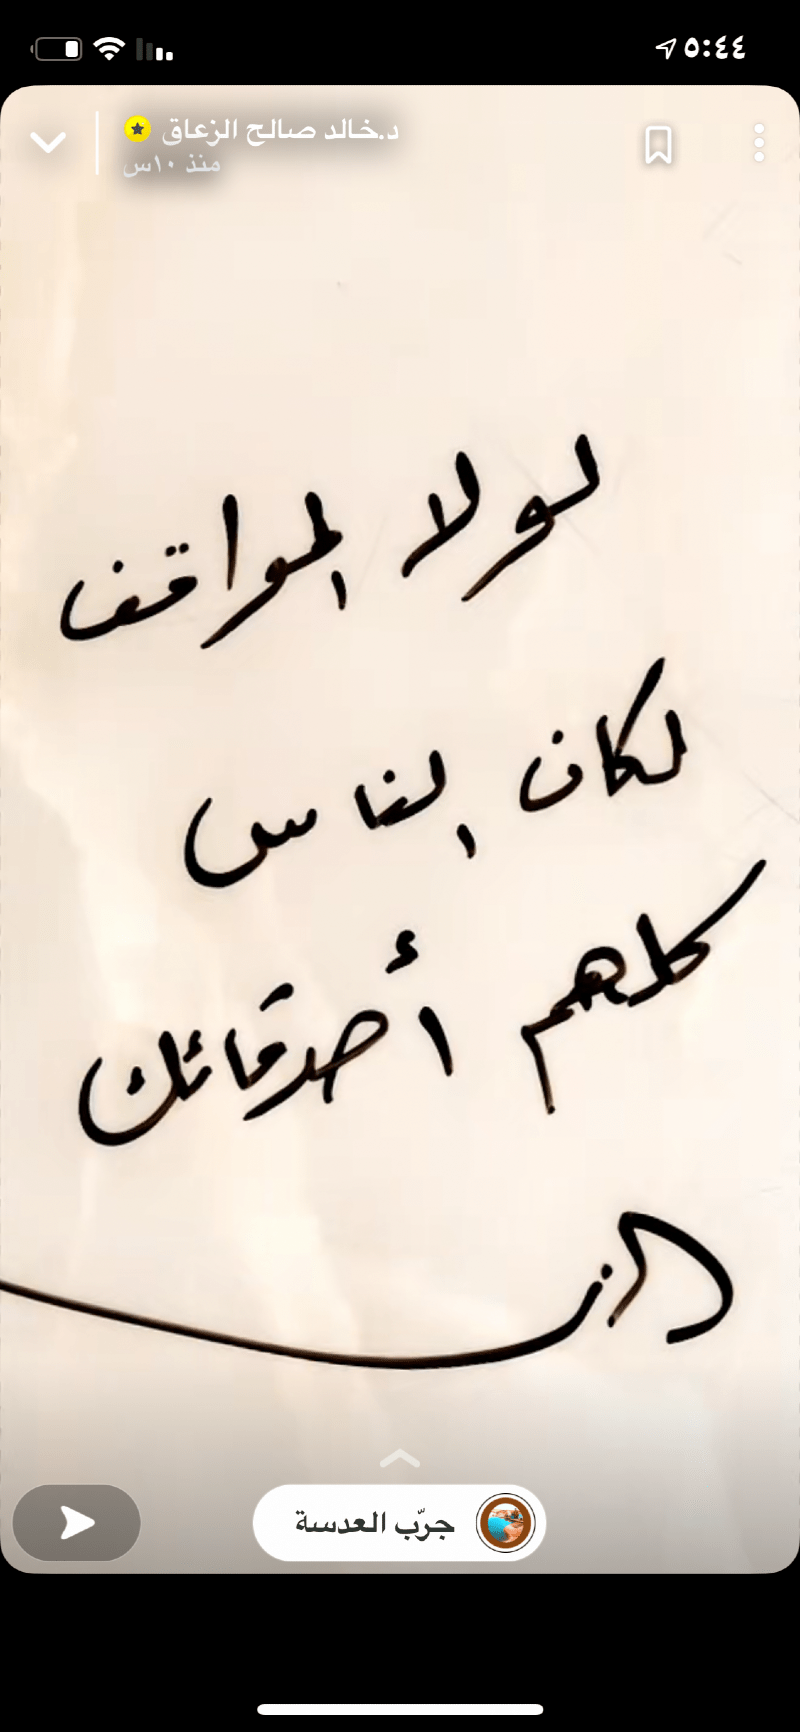 ٥:٤٤
د.خالد صالح الزعاق
منذ ١٠س
لولا المواقف
لكان الناس
كلهم أصدقائك
جرّب العدسة